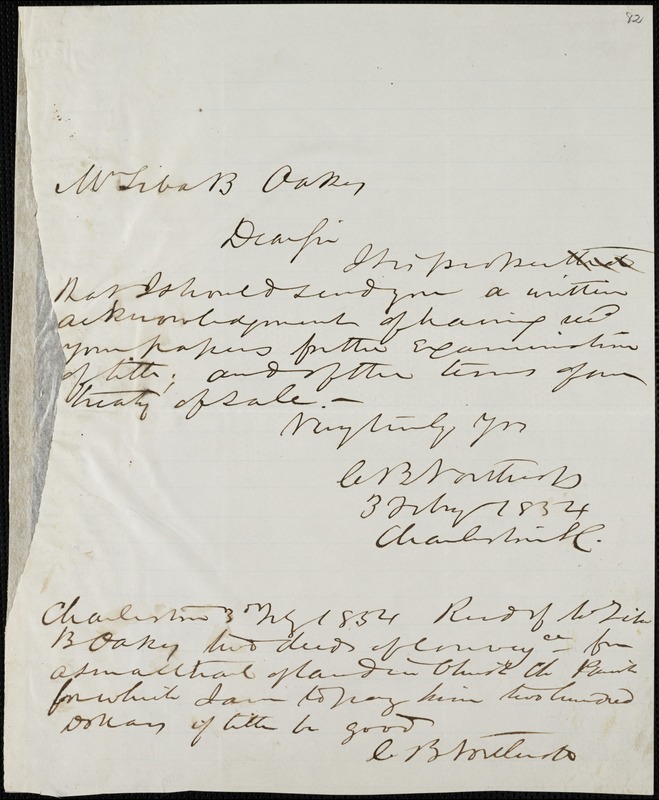 82
Mr Ziba B Oakes
Dear Sir
It is proper that
that I should send you a written
acknowledgment of having recd
your papers for the examination
of title; and of the terms of our
treaty of sale. —
Very truly Yrs
C B Northrop
3 Feby 1854
Charleston SC.
Charleston 3rd Feby 1854 Recd of Mr Ziba
B Oakes two deeds of conveyce for
a small tract of land in Christ Ch Parish
for which I am to pay him two hundred
Dollars if title be good
C B Northrop